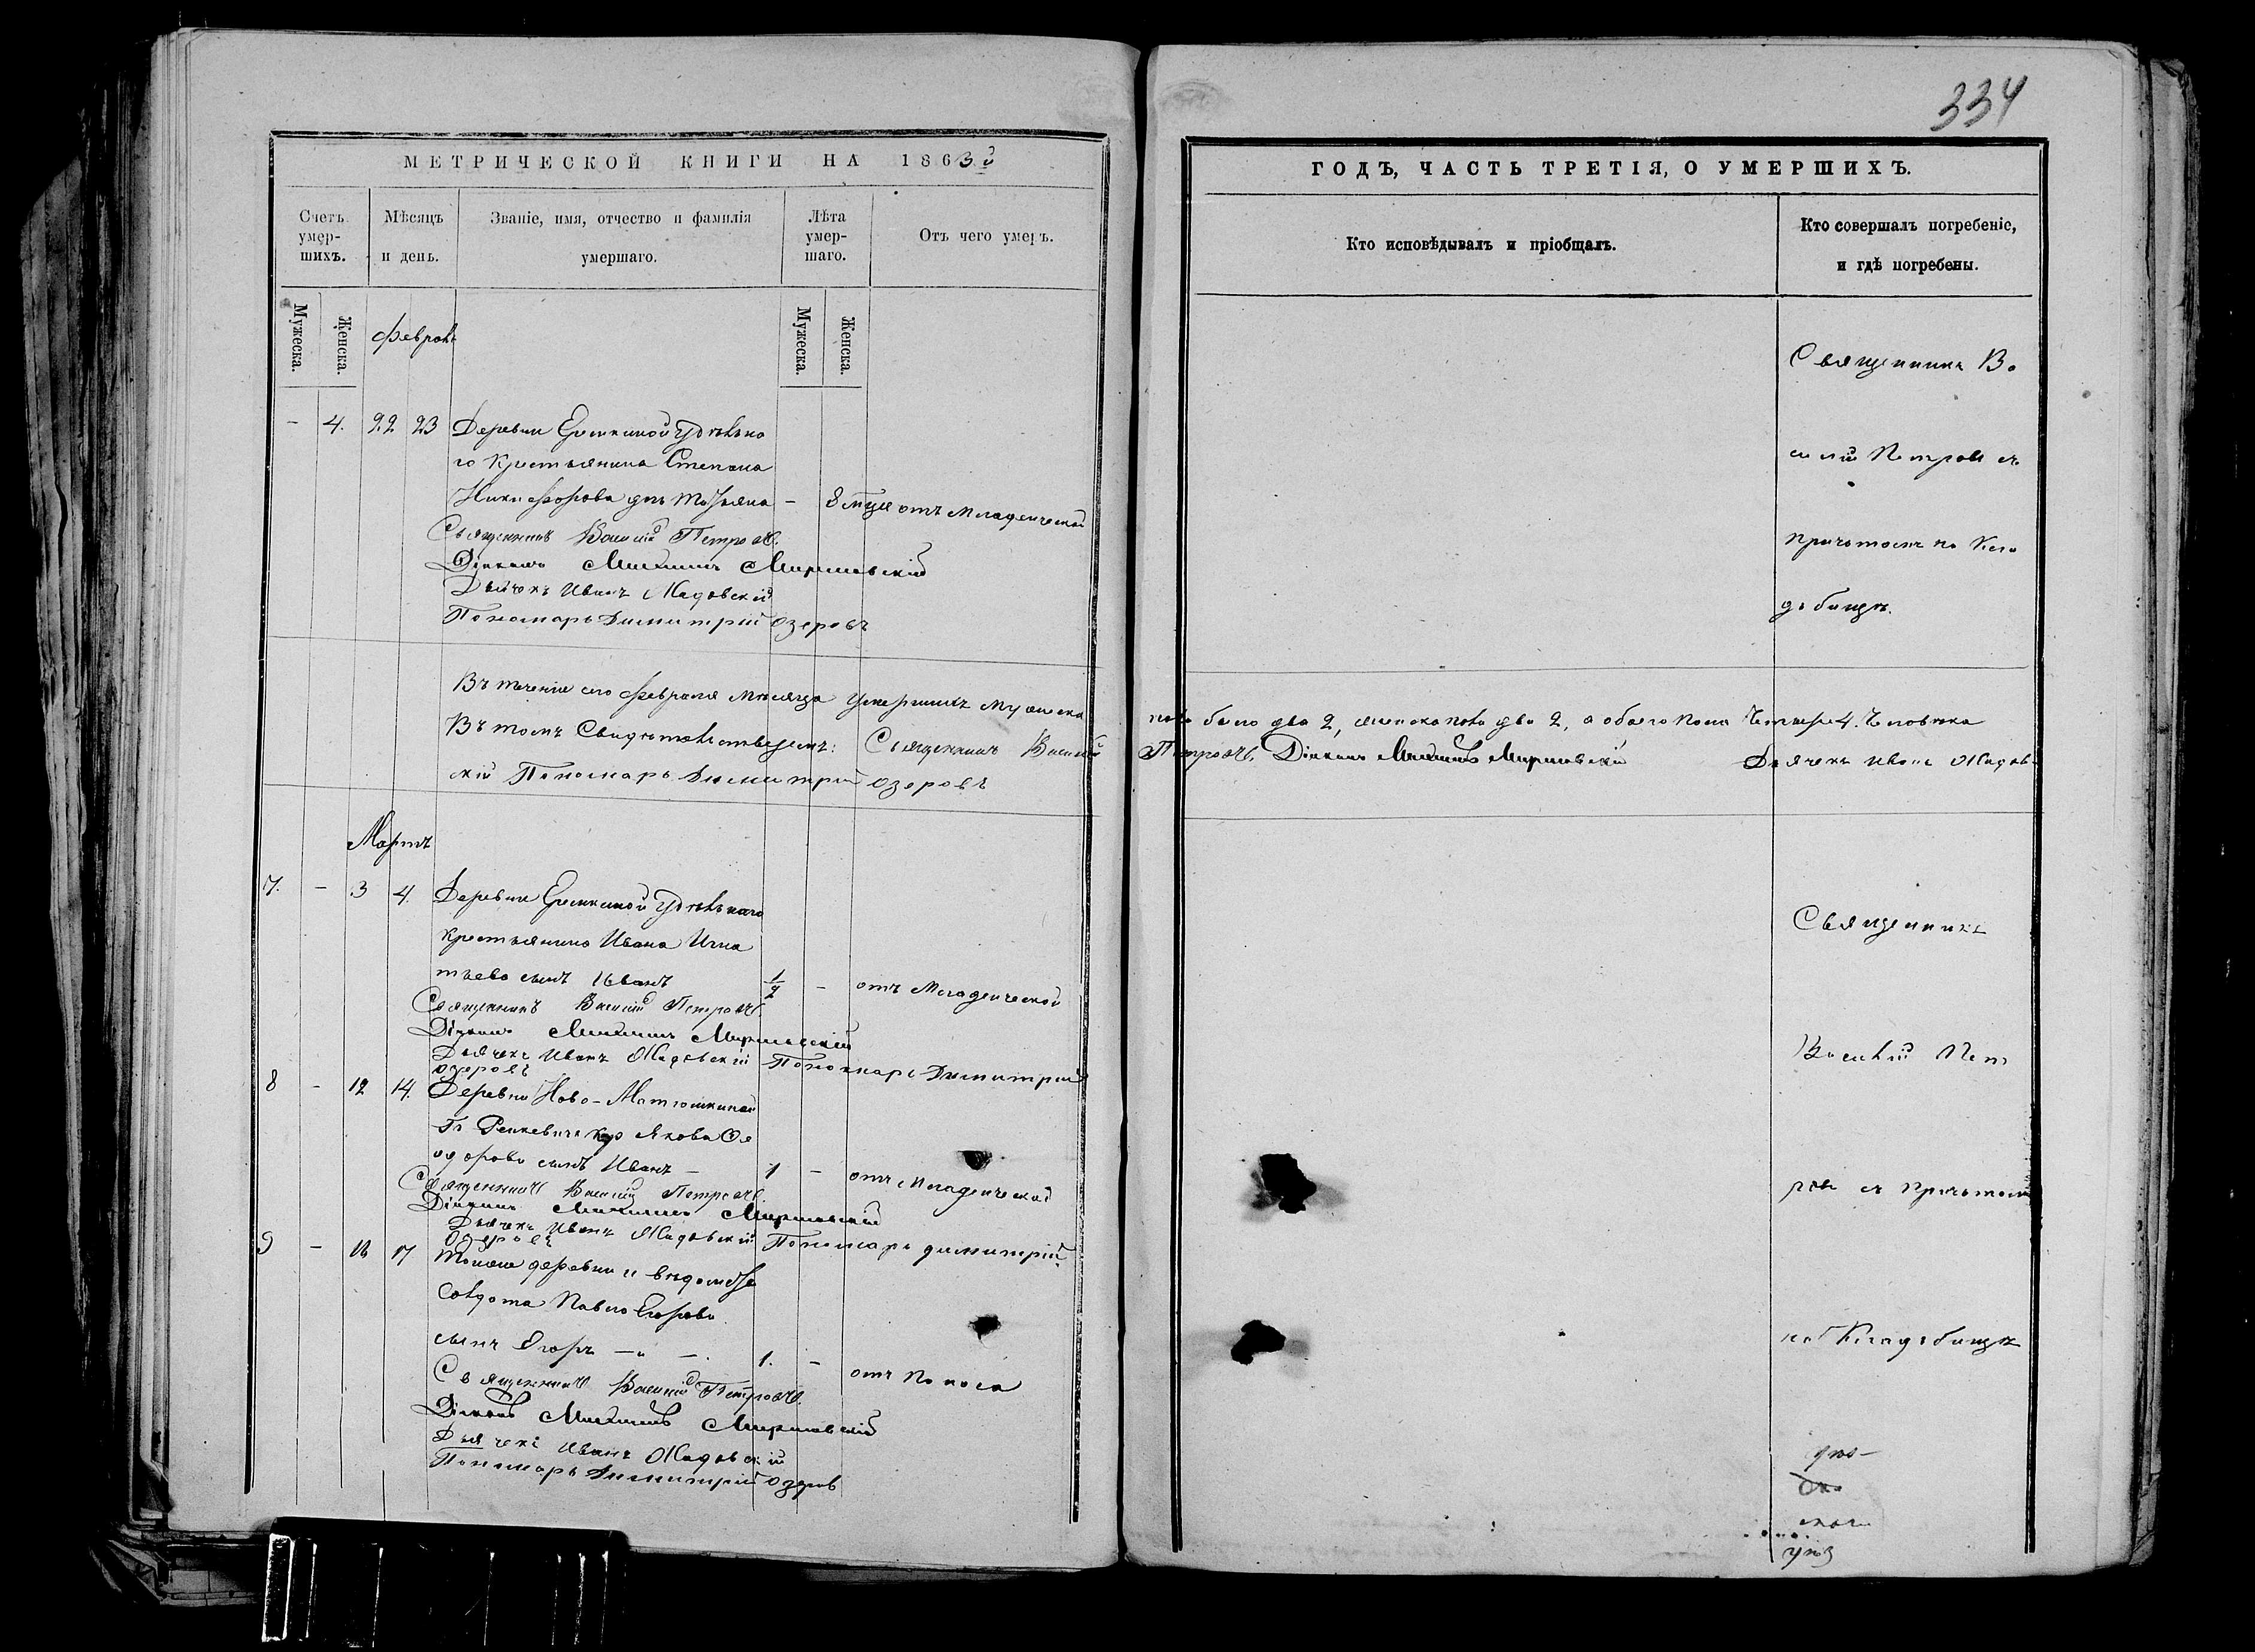 334
МЕТРИЧЕСКОЙ КНИГИ НА 1863й
Счетъ умершихъ.
Мѣсяцъ и день.
Званіе, имя, отчество и фамилія умершаго.
Лѣта умершаго.
Отъ чего умеръ.
Мужеска.
Женска.
Мужеска.
Женска.
Февраль
- 4. 22 23 Деревни Удѣльна
го крестьянина Степана
Никифорова дочь Татьяна - 8 мѣся отъ младенческой
Священникъ Василій Петровъ.
Діаконъ Михаилъ
Дьячекъ Иванъ Жадовскій
Пономарь Димитрій Озеровъ
Въ теченіе сего Февраля мѣсяца умершихъ мужеска
Въ томъ свидѣтельствуемъ: Священникъ Василій
скій Пономарь Димитрій Озеровъ
Мартъ
7. - 3 4. Деревни Удѣльнаго
крестьянина Ивана Игна
тьева сынъ Иванъ 1/2 - отъ младенческой
Священникъ Василій Петровъ.
Діаконъ Михаилъ
Дьячекъ Иванъ Жадовскій Пономарь Димитрій
Озеровъ
8 - 12 14. Деревни Ново-Матюшкиной
Гг Ренкевича кр Якова Ѳе
одорова сынъ Иванъ - 1 - отъ младенческой
Священникъ Василій Петровъ.
Діаконъ Михаилъ
Дьячекъ Иванъ Жадовскій Пономарь Димитрій
Озеровъ
9 - 16 17 Тойже деревни и вѣдомства
солдата Павла Егорова
сынъ Егоръ — „ —. 1. - отъ поноса
Священникъ Василій Петровъ.
Діаконъ Михаилъ
Дьячекъ Иванъ Жадовскій
Пономарь Димитрій Озеровъ
ГОДЪ, ЧАСТЬ ТРЕТІЯ, О УМЕРШИХЪ.
Кто исповѣдывалъ и пріобщалъ.
Кто совершалъ погребеніе, и гдѣ погребены.
Священникъ Ва
силій Петровъ съ
причтомъ на кла
дбищѣ.
пола было два 2, женска пола два 2, а обоего пола четыре 4. человѣка
Петровъ, Діаконъ Михаилъ Дьячекъ Иванъ Жадов-
Священникъ
Василій Пет
ровъ съ причтомъ
на кладбищѣ